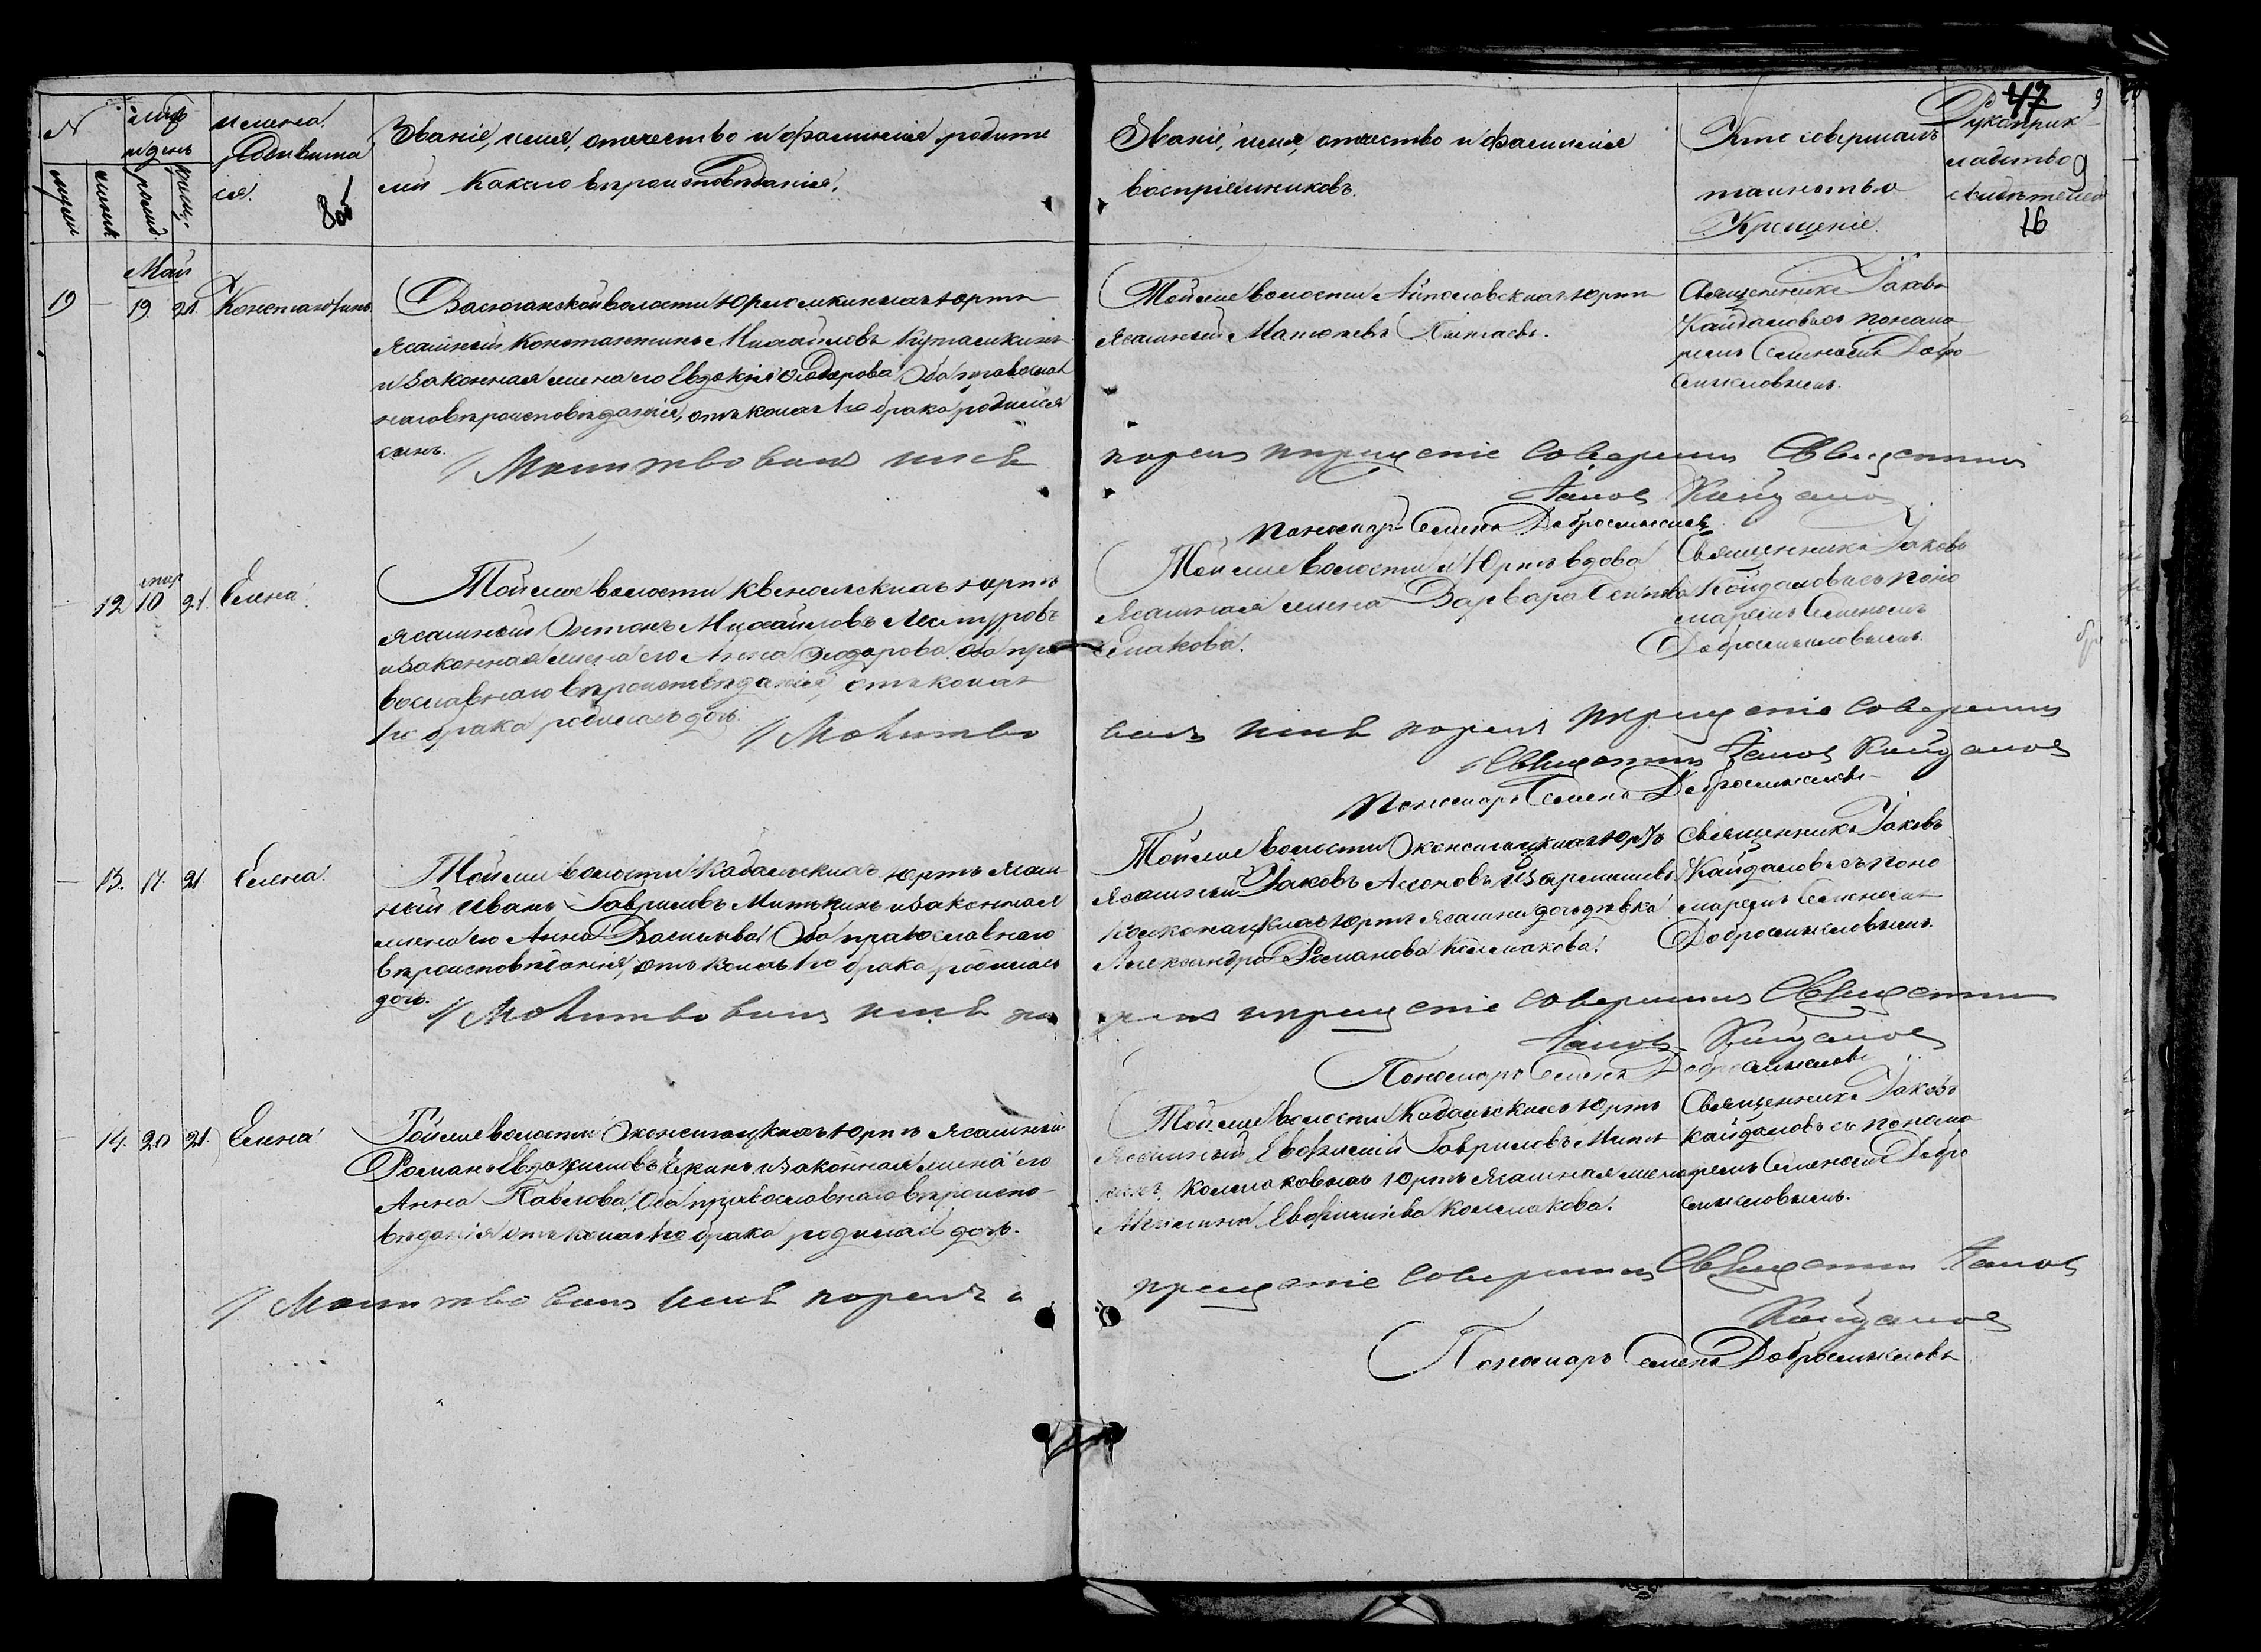 N
мцъ
и день
имена
родивша
ся.
Званіе, имя, отчество и фамилия родите
лей какаго вѣроисповѣданія.
мужск
женск
рожд.
крещ.
80
Званіе, имя, отчество и фамилия
воспріемниковъ.
Кто совершалъ
таинство
Крещеніе.
47
9
Рукоприк
ладство
свидѣтелей
16
Май
19 — 19. 21. Константинъ.
Васюганской волости юрт
Ясашный Константинъ Михайловъ
и законная жена его Евдокія Федорова Оба православ
наго вѣроисповѣданія, отъ коихъ 1го брака родился
сынъ.
Тойже волости Айполовскихъ юртъ
Ясашный
Священникъ Іаковъ
Кайдаловъ съ понама
ремъ Семеномъ Добро
смысловымъ.
Молитвовалъ имя
нарекъ и крещеніе совершилъ Священникъ
Іаковъ Кайдаловъ
Пономарь Семенъ Добросмысловъ
12 10 21. Елена.
Тойже волости юртъ
ясашный Антонъ Михайловъ
и законная жена его Анна Федорова Оба пра
вославнаго вѣроисповѣданія, отъ коихъ
1го брака родилась дочь.
Тойже волости и Юртъ вдова
Ясашная жена Варвара
Священникъ Іаковъ
Кайдаловъ съ поно
маремъ Семеномъ
Добросмысловымъ.
Молитво
валъ имя нарекъ и крещеніе совершилъ
Священникъ Іаковъ Кайдаловъ
Пономарь Семенъ Добросмысловъ
— 13. 17. 21 Елена.
Тойже волости Кадальскихъ юртъ ясаш-
ный Иванъ Гавриловъ Миткинъ и законная
жена его Анна Васильева Оба православнаго
вѣроисповѣданія, отъ коихъ 1го брака родилась
дочь.
Тойже волости юртъ
ясашный Іаковъ
юртъ ясашная дочь дѣвка
Александра Романова Колмакова.
Священникъ Іаковъ
Кайдаловъ съ поно
маремъ Семеномъ
Добросмысловымъ.
Молитвовалъ имя на
рекъ и крещеніе совершилъ Священникъ
Іаковъ Кайдаловъ
Пономарь Семенъ Добросмысловъ
— 14. 20 21. Елена
Тойже волости юртъ Ясашный
Романъ Евдокимовъ и законная жена его
Анна Павлова Оба православнаго вѣроиспо-
вѣданія отъ коихъ 1го брака родилась дочь.
Тойже волости Кадальскихъ юртъ
Ясашный Евфимий Гавриловъ Мит
кинъ, Колмаковыхъ юртъ Ясашная жена
Евфимиева Колмакова.
Священникъ Іаковъ
Кайдаловъ съ понома
ремъ Семеномъ Добро
смысловымъ.
Молитвовалъ имя нарекъ и
крещеніе совершилъ Священникъ Іаковъ
Кайдаловъ
Пономарь Семенъ Добросмысловъ